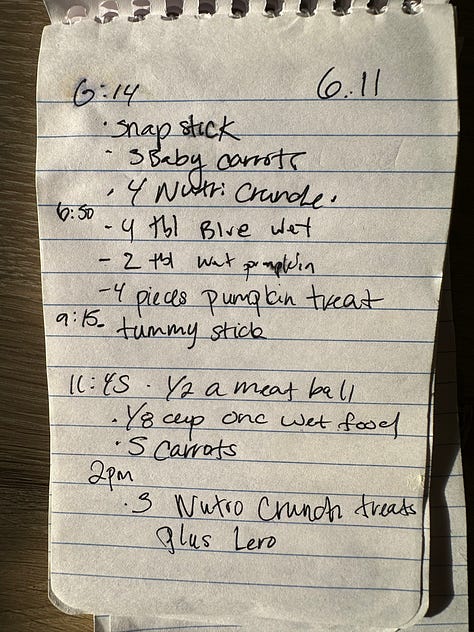 6:14 6.11
· snap stick
- 3 Baby carrots
· 4 Nutri Crunch.
6:50 - 4 tbl Blue wet
- 2 tbl wet pumpkin
- 4 pieces pumpkin treat
9:15- tummy stick
11:45 · 1/2 a meat ball
· 1/8 cup onc wet food
· 5 Carrots
2pm
· 3 Nutro Crunch treats
plus Lero